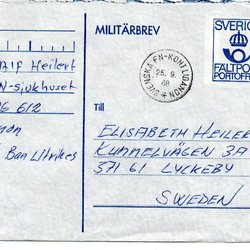 MILITÄRBREV
SVERIGE
FÄLTPOST
PORTOFRITT
SVENSKA FN-KONT LIBANON
25. 9.
86
Heilert
N-sjukhuset
06 612
non
Ban Utrikes
Till
ELISABETH HEILER
KUMMELVÄGEN 3A
371 61 LYCKEBY
SWEDEN